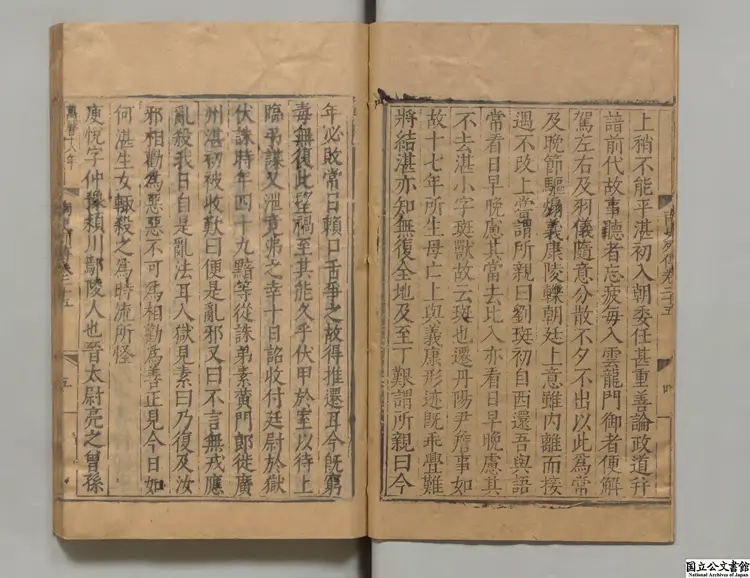 上稍不能平湛初入朝委任甚重善論政道并
諳前代故事聽者忘疲每入雲龍門御者便解
駕左右及羽儀隨意分散不夕不出以此為常
及晚節驅煽義康陵轢朝廷上意雖内離而接
遇不改上嘗謂所親曰劉斑初自西還吾與語
常看日早晚慮其當去比入亦看日早晚慮其
不去湛小字斑獸故云斑也遷丹陽尹詹事如
故十七年所生母亡上與義康形迹既乖釁難
將結湛亦知無復全地及至丁艱謂所親曰今
年必敗常日賴口舌爭之故得推遷耳今既窮
毒無復此望禍至其能久乎伏甲於室以待上
臨弔謀又泄竟弗之幸十日詔收付廷尉於獄
伏誅時年四十九黯等從誅弟素黄門郎徙廣
州湛初被收歎曰便是亂邪又曰不言無戎應
亂殺我日自是亂法耳入獄見素曰乃復及汝
邪相勸為惡惡不可為相勸為善正見今日如
何湛生女輙殺之為時流所怪
庾悅字仲豫頴川鄢陵人也晉太尉亮之曾孫
萬曆十八年
五
国立公文書館
National Archives of Japan